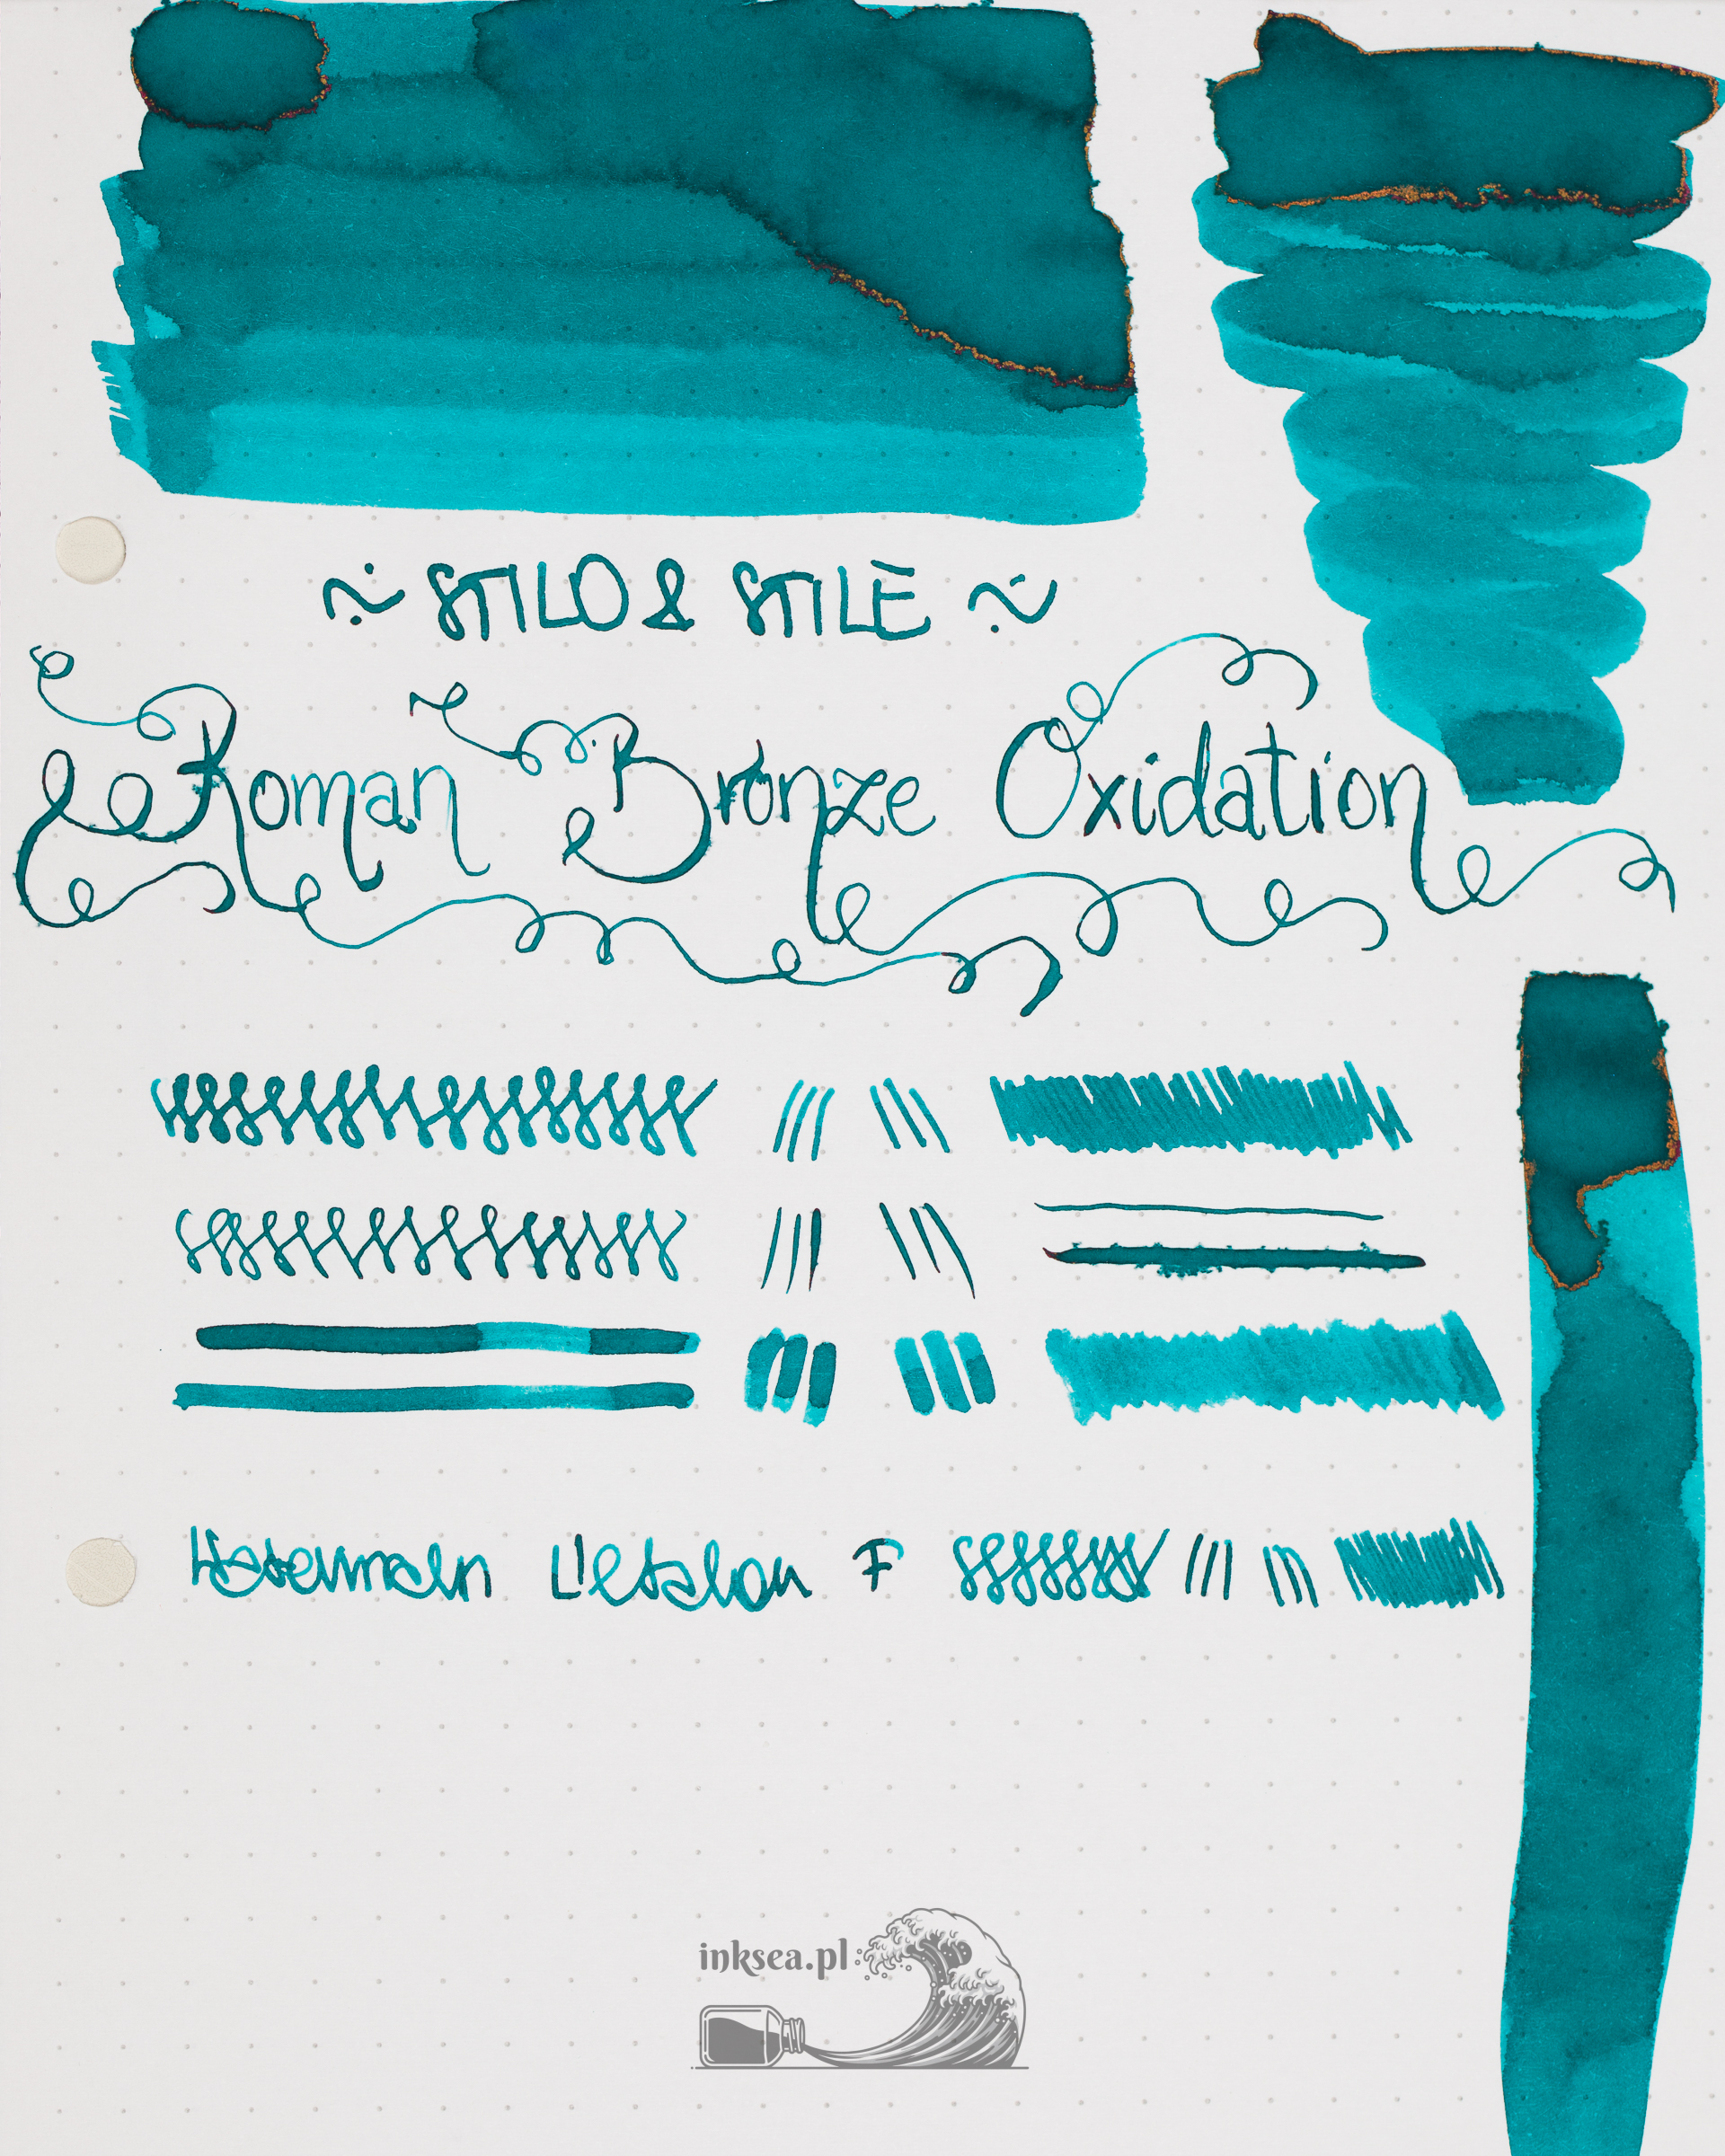 ~ STILO & STILE ~
Roman Bronze Oxidation
Waterman L'etalon F
inksea.pl